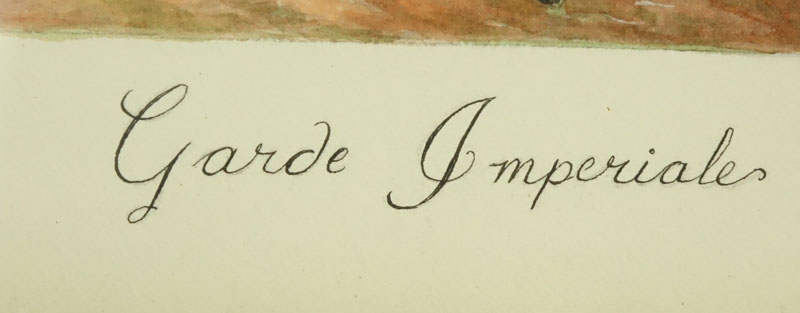 Garde Imperiales